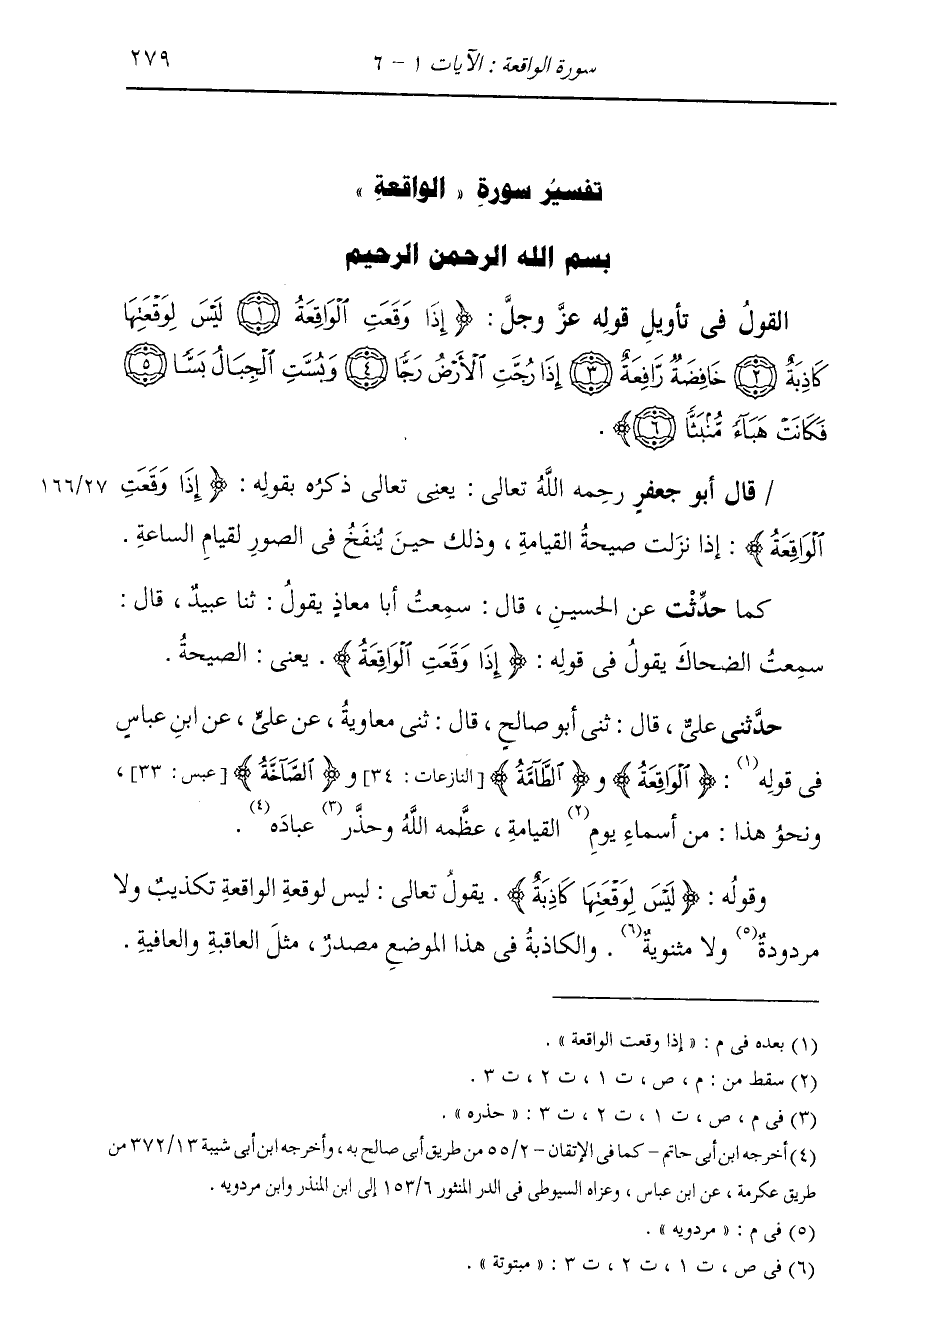 سورة الواقعة : الآيات ١ - ٦ ٢٧٩
تفسيرُ سورةِ « الواقعةِ »
بسم الله الرحمن الرحيم
القولُ فى تأويلِ قولِه عزَّ وجلَّ : ﴿ إِذَا وَقَعَتِ ٱلْوَاقِعَةُ ۝١ لَيْسَ لِوَقْعَتِهَا
كَاذِبَةٌ ۝٢ خَافِضَةٌ رَّافِعَةٌ ۝٣ إِذَا رُجَّتِ ٱلْأَرْضُ رَجًّا ۝٤ وَبُسَّتِ ٱلْجِبَالُ بَسًّا ۝٥
فَكَانَتْ هَبَآءً مُّنۢبَثًّا ۝٦ ﴾ .
/ قال أبو جعفرٍ رحِمه اللَّهُ تعالى : يعنى تعالى ذكرُه بقولِه : ﴿ إِذَا وَقَعَتِ ١٦٦/٢٧
ٱلْوَاقِعَةُ ﴾ : إذا نزَلت صيحةُ القيامةِ ، وذلك حينَ يُنفَخُ فى الصورِ لقيامِ الساعةِ .
كما حدِّثْت عن الحسينِ ، قال : سمِعتُ أبا معاذٍ يقولُ : ثنا عبيدٌ ، قال :
سمِعتُ الضحاكَ يقولُ فى قولِه : ﴿ إِذَا وَقَعَتِ ٱلْوَاقِعَةُ ﴾ . يعنى : الصيحةُ .
حدَّثنى علىٌّ ، قال : ثنى أبو صالحٍ ، قال : ثنى معاويةُ ، عن علىٍّ ، عن ابنِ عباسٍ
فى قولِه (١) : ﴿ ٱلْوَاقِعَةُ ﴾ و ﴿ ٱلطَّآمَّةُ ﴾ [النازعات : ٣٤] و ﴿ ٱلصَّآخَّةُ ﴾ [عبس : ٣٣] ،
ونحوُ هذا : من أسماءِ يومِ (٢) القيامةِ ، عظَّمه اللَّهُ وحذَّر (٣) عبادَه (٤) .
وقولُه : ﴿ لَيْسَ لِوَقْعَتِهَا كَاذِبَةٌ ﴾ . يقولُ تعالى : ليس لوقعةِ الواقعةِ تكذيبٌ ولا
مردودةٌ (٥) ولا مثنويةٌ (٦) . والكاذبةُ فى هذا الموضعِ مصدرٌ ، مثلَ العاقبةِ والعافيةِ .
(١) بعده فى م : « إذا وقعت الواقعة » .
(٢) سقط من : م ، ص ، ت ١ ، ت ٢ ، ت ٣ .
(٣) فى م ، ص ، ت ١ ، ت ٢ ، ت ٣ : « حذره » .
(٤) أخرجه ابن أبى حاتم – كما فى الإتقان – ٥٥/٢ من طريق أبى صالح به ، وأخرجه ابن أبى شيبة ٣٧٢/١٣ من
طريق عكرمة ، عن ابن عباس ، وعزاه السيوطى فى الدر المنثور ١٥٣/٦ إلى ابن المنذر وابن مردويه .
(٥) فى م : « مردويه » .
(٦) فى ص ، ت ١ ، ت ٢ ، ت ٣ : « مبتوتة » .